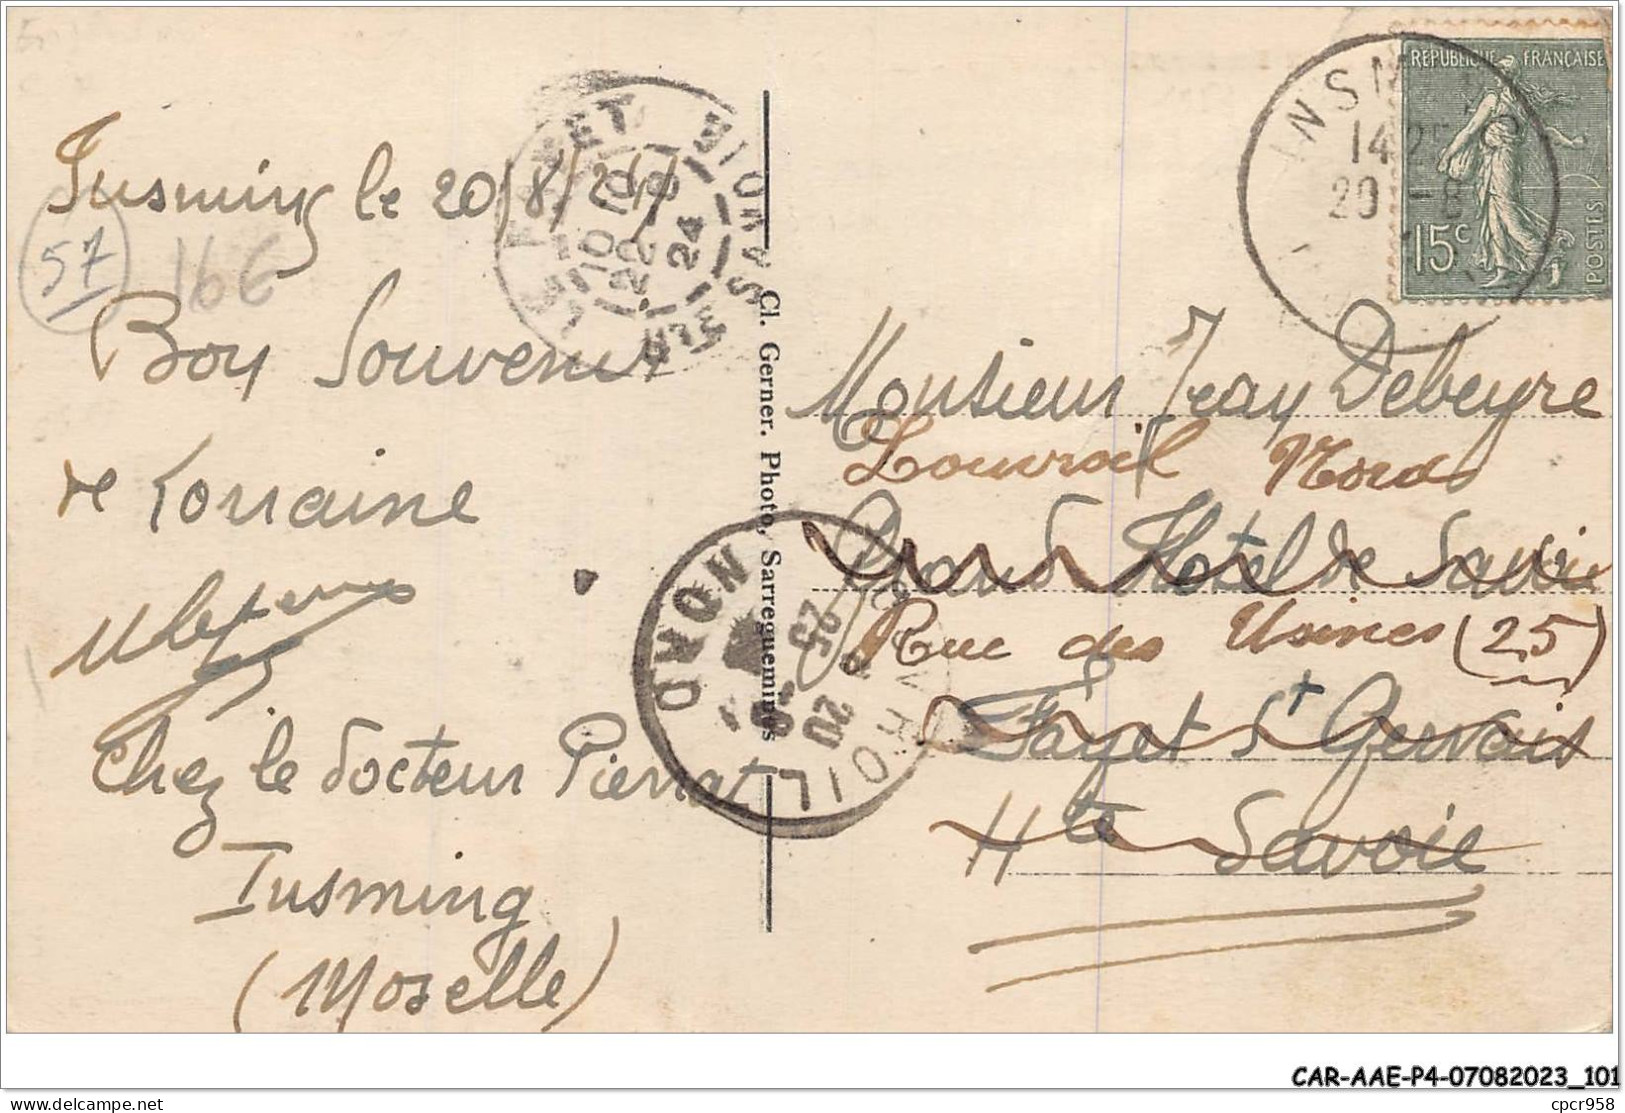 Insming le 20/8/24
57
16€
Bon Souvenir
de Lorraine
Chez le docteur Pierrat
Insming
(Moselle)
Cl. Gerner. Photo, Sarreguemines
REPUBLIQUE FRANÇAISE
15c
POSTES
INSM
14
20 -8
LE FAYET
22-8
24
NORD
25
Monsieur Jean Debeyre
Louvroil Nord
Grand Hotel de Savoie
Rue des Usines (25)
Fayet St Gervais
Hte Savoie
CAR-AAE-P4-07082023_101
delcampe.net
cpcr958